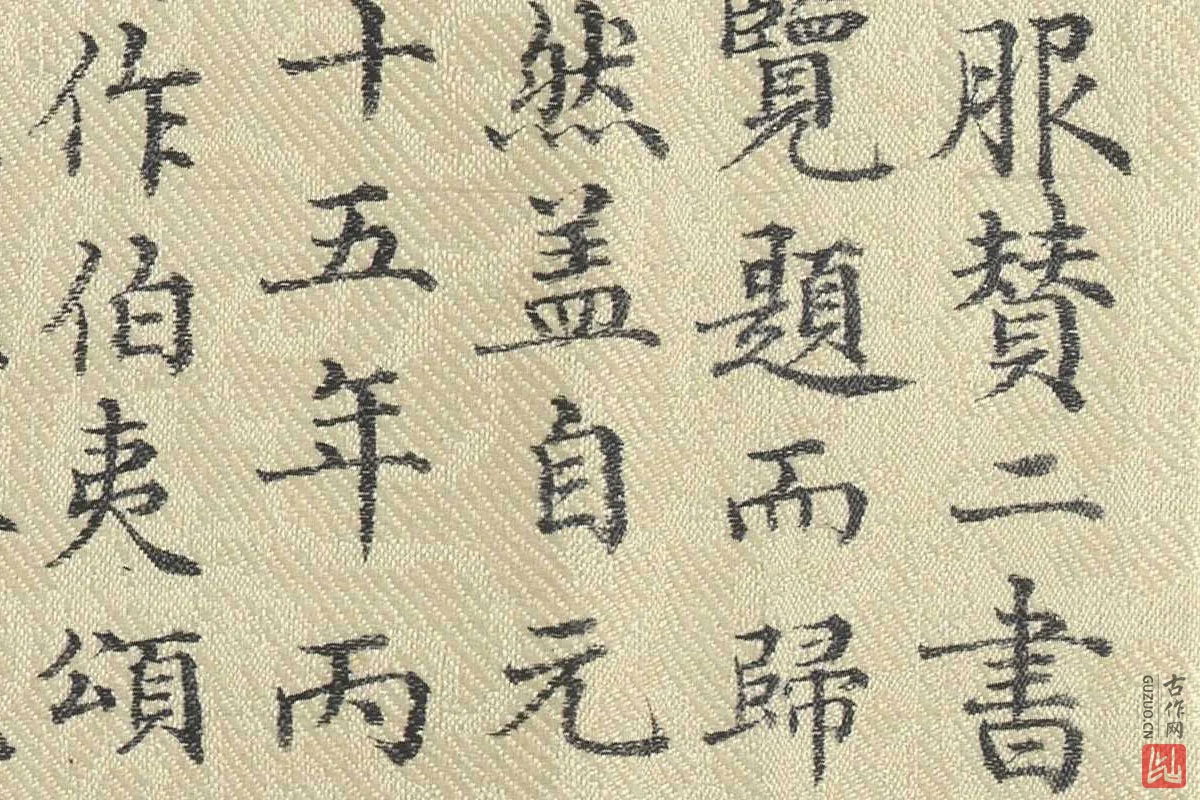 服賛二書
覽題而歸
然盖自元
十五年丙
作伯夷頌
古作网
GUZUO.CN